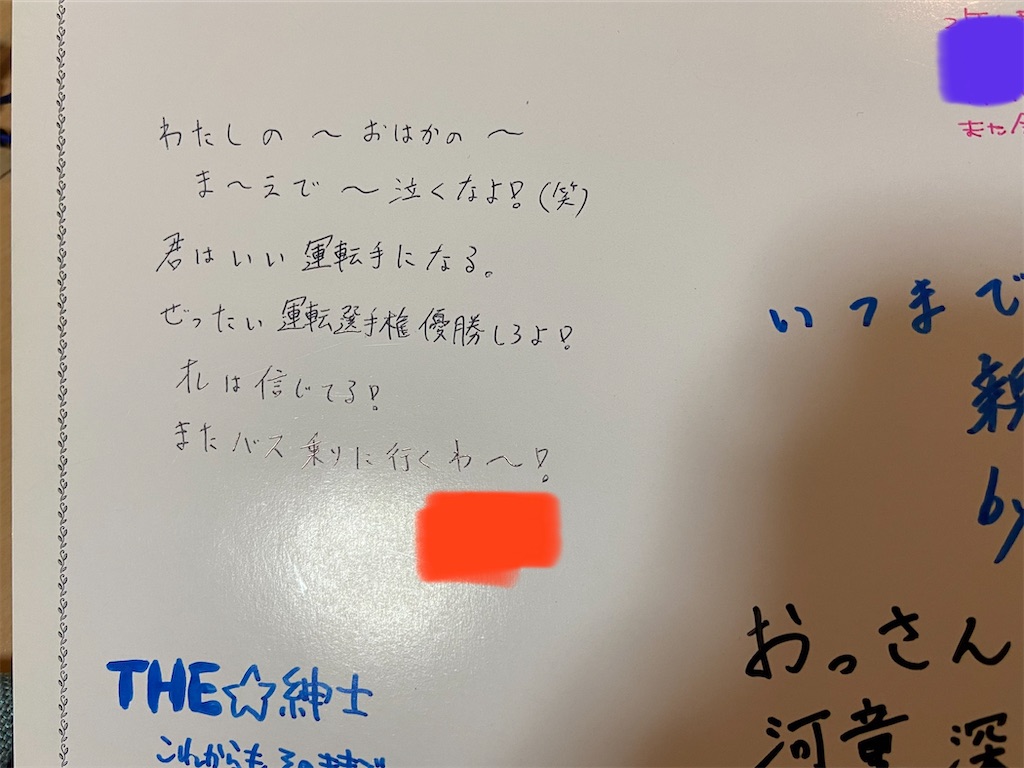 わたしの〜おはかの〜
ま〜えで〜泣くなよ!(笑)
君はいい運転手になる。
ぜったい運転選手権優勝しろよ!
オレは信じてる!
またバス乗りに行くわ〜!
THE☆紳士
これからもそのままで
また
いつまで
親
by
おっさん
河童 深